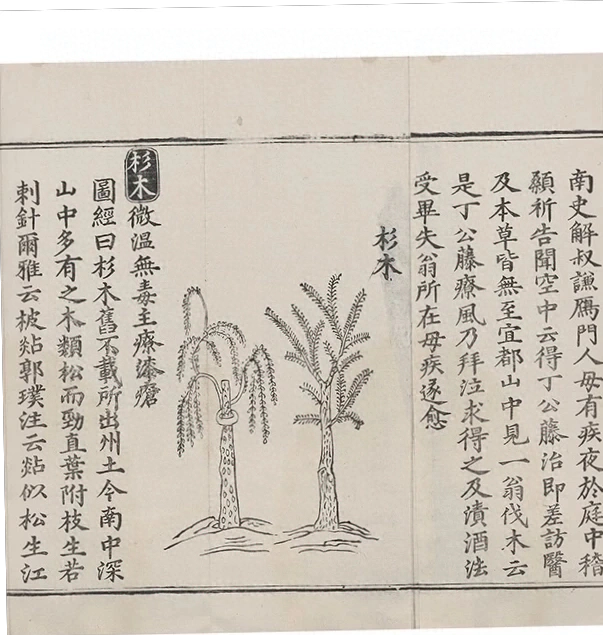 南史解叔謙鴈門人母有疾夜於庭中稽
顙祈告聞空中云得丁公藤治即差訪醫
及本草皆無至宜都山中見一翁伐木云
是丁公藤療風乃拜泣求得之及漬酒法
受畢失翁所在母疾遂愈
杉木
杉木微溫無毒主療漆瘡
圖經曰杉木舊不載所出州土今南中深
山中多有之木類松而勁直葉附枝生若
刺針爾雅云柀煔郭璞注云煔似松生江